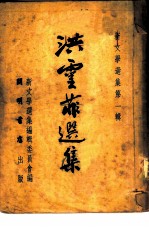 新文學選集第一輯
洪靈菲選集
新文學選集編輯委員會編
開明書店出版